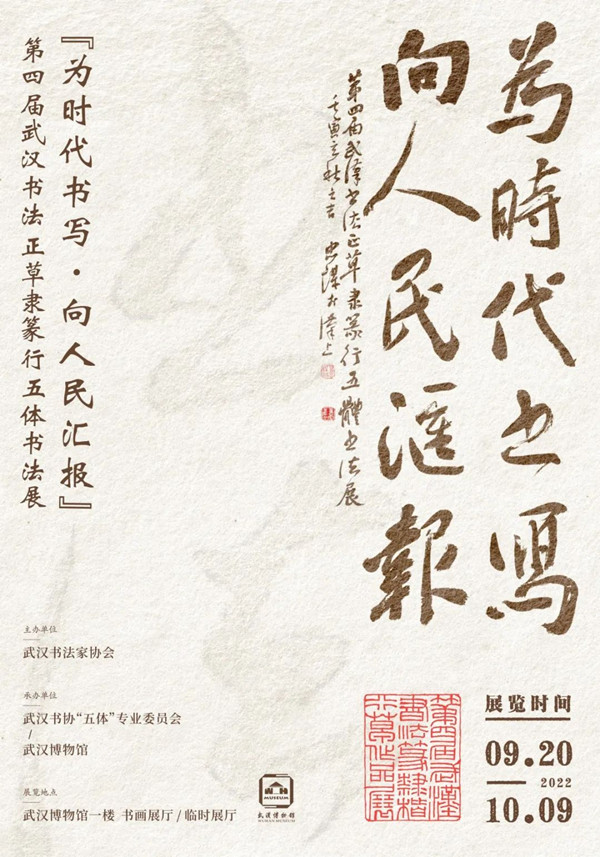 為時代书寫
向人民匯報
第四届武漢书法正草隶篆行五體书法展
壬寅立秋之吉
『为时代书写·向人民汇报』
第四届武汉书法正草隶篆行五体书法展
主办单位
武汉书法家协会
承办单位
武汉书协“五体”专业委员会
/
武汉博物馆
展览地点
武汉博物馆一楼 书画展厅 / 临时展厅
MUSEUM
武漢博物館
WUHAN MUSEUM
第四届武漢
書法篆隸楷
行草作品展
展览时间
09.20
2022
10.09